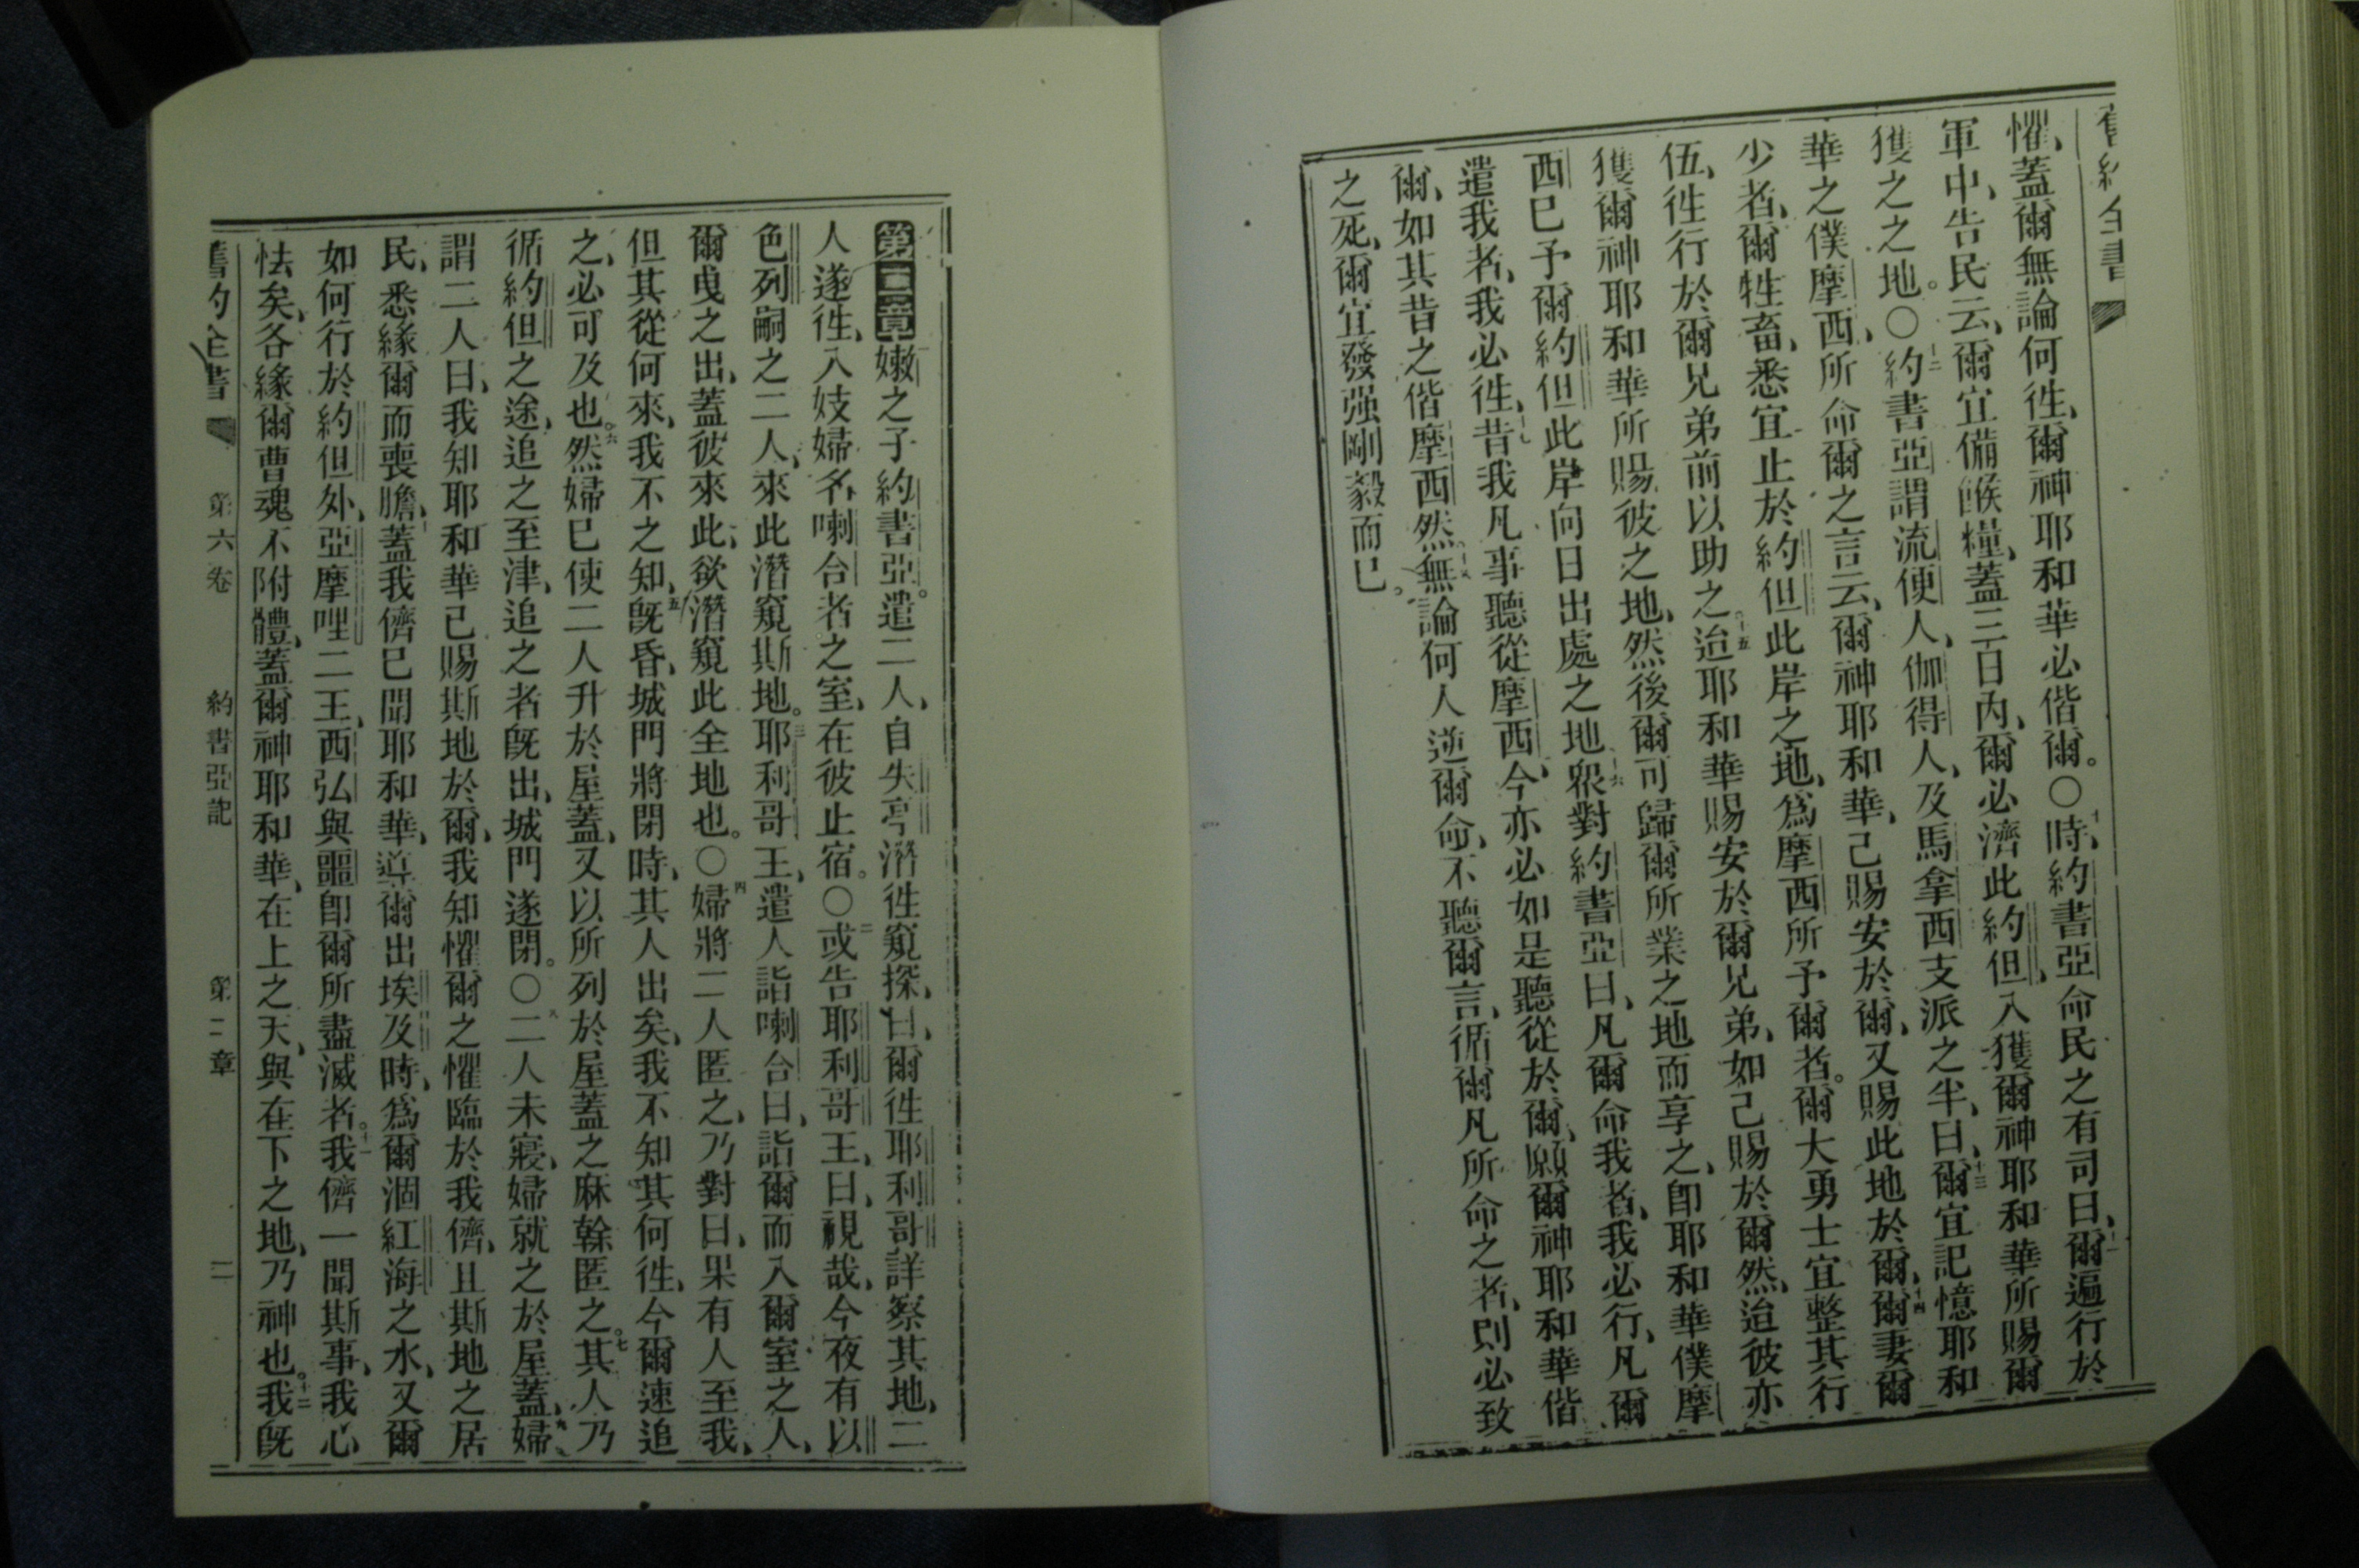 舊約全書
懼、蓋爾無論何徃、爾神耶和華必偕爾。〇十時、約書亞命民之有司曰、十一爾遍行於
軍中、告民云、爾宜備餱糧、蓋三日內、爾必濟此約但、入獲爾神耶和華所賜爾
獲之之地。〇十二約書亞謂流便人、伽得人、及馬拿西支派之半、曰、十三爾宜記憶耶和
華之僕摩西、所命爾之言云、爾神耶和華、己賜安於爾、又賜此地於爾、十四爾妻爾
少者、爾牲畜、悉宜止於約但此岸之地、爲摩西所予爾者。爾大勇士宜整其行
伍、徃行於爾兄弟前以助之、十五迨耶和華賜安於爾兄弟、如己賜於爾然、迨彼亦
獲爾神耶和華所賜彼之地、然後爾可歸爾所業之地而享之、卽耶和華僕摩
西已予爾約但此岸向日出處之地。十六衆對約書亞曰、凡爾命我者、我必行、凡爾
遣我者、我必徃、十七昔我凡事聽從摩西、今亦必如是聽從於爾、願爾神耶和華偕
爾、如其昔之偕摩西然、十八無論何人逆爾命、不聽爾言、循爾凡所命之者、則必致
之死、爾宜發强剛毅而已。
第二章 嫩之子約書亞。遣二人、自失亭潛徃窺探、曰、爾徃耶利哥詳察其地、二
人遂徃、入妓婦名喇合者之室、在彼止宿。〇二或告耶利哥王、曰、視哉、今夜有以
色列嗣之二人、來此潛窺斯地。三耶利哥王、遣人詣喇合曰、詣爾而入爾室之人、
爾曳之出、蓋彼來此、欲潛窺此全地也。〇四婦將二人匿之、乃對曰、果有人至我、
但其從何來、我不之知、五旣昏、城門將閉時、其人出矣、我不知其何徃、今爾速追
之、必可及也。六然婦已使二人升於屋蓋、又以所列於屋蓋之麻榦匿之。七其人乃
循約但之途、追之至津、追之者旣出、城門遂閉。〇八二人未寢、婦就之於屋蓋、九婦
謂二人曰、我知耶和華己賜斯地於爾、我知懼爾之懼臨於我儕、且斯地之居
民、悉緣爾而喪膽、十蓋我儕已聞耶和華、導爾出埃及時、爲爾涸紅海之水、又爾
如何行於約但外、亞摩哩二王、西弘與噩卽爾所盡滅者。十一我儕一聞斯事、我心
怯矣、各緣爾曹魂不附體、蓋爾神耶和華、在上之天、與在下之地、乃神也。十二我旣
舊約全書 第六卷 約書亞記 第二章 二